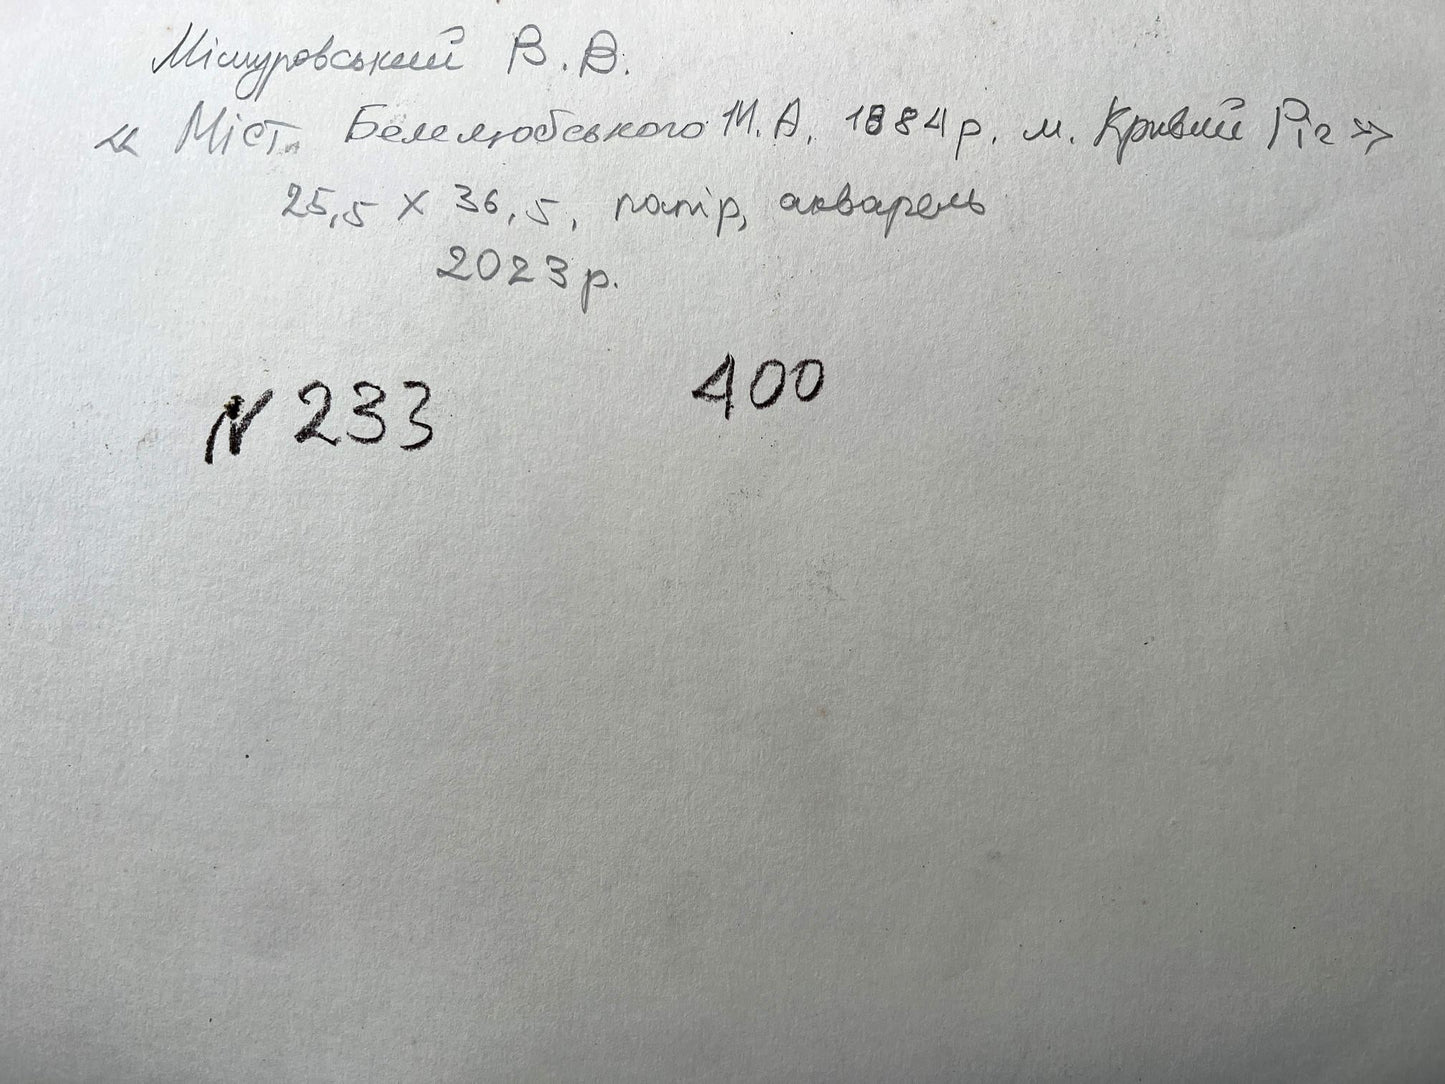 Мішуровський В.В.
« Міст. Белелюбського М.А, 1884 р. м. Кривий Ріг »
25,5 х 36,5, папір, акварель
2023 р.
N 233 400